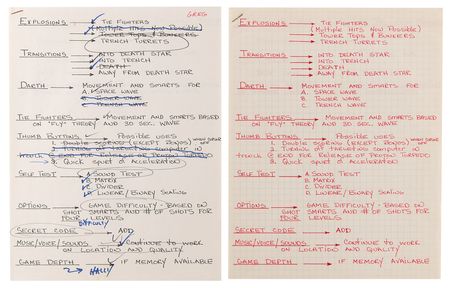 GREG
EXPLOSIONS → TIE FIGHTERS
(Multiple Hits Now Possible)
TOWER TOPS & BUNKERS
TRENCH TURRETS
TRANSITIONS → INTO DEATH STAR
INTO TRENCH
DEATH
AWAY FROM DEATH STAR
DARTH → MOVEMENT AND SMARTS FOR
A. SPACE WAVE
B. TOWER WAVE
C. TRENCH WAVE
TIE FIGHTERS → MOVEMENT AND SMARTS BASED
ON "FLY" THEORY AND 30 SEC. WAVE
THUMB BUTTONS → Possible uses
1. Double scoring (EXCEPT BONUS) WHEN SHIELDS OFF
2. Turning of Targeting computer in
trench @ END FOR RELEASE OF PROTON TORPEDO
3. Quick spurt of Acceleration
SELF TEST → A SOUND TEST
B. MATRIX
C. DIVIDER
D. LINEAR/BINARY SCALING
OPTIONS → GAME DIFFICULTY - BASED ON
SHOT SMARTS AND # OF SHOTS FOR
FOUR LEVELS
DIFFICULTY
SECRET CODE → ADD
MUSIC/VOICE/SOUNDS → CONTINUE TO WORK
ON LOCATION AND QUALITY
GAME DEPTH → IF MEMORY AVAILABLE
→ HALLY
EXPLOSIONS → TIE FIGHTERS
(Multiple Hits Now Possible)
TOWER TOPS & BUNKERS
TRENCH TURRETS
TRANSITIONS → INTO DEATH STAR
INTO TRENCH
DEATH
AWAY FROM DEATH STAR
DARTH → MOVEMENT AND SMARTS FOR
A. SPACE WAVE
B. TOWER WAVE
C. TRENCH WAVE
TIE FIGHTERS → MOVEMENT AND SMARTS BASED
ON "FLY" THEORY AND 30 SEC WAVE
THUMB BUTTONS → Possible uses
1. Double scoring (EXCEPT BONUS) WHEN SHIELDS OFF
2. Turning of Targeting computer in trench
@ END FOR RELEASE OF PROTON TORPEDO
3. Quick spurt of Acceleration
SELF TEST → A SOUND TEST
B. MATRIX
C. DIVIDER
D. LINEAR/BINARY SCALING
OPTIONS → GAME DIFFICULTY - BASED ON
SHOT SMARTS AND # OF SHOTS FOR
FOUR LEVELS
SECRET CODE → ADD
MUSIC/VOICE/SOUNDS → CONTINUE TO WORK
ON LOCATION AND QUALITY
GAME DEPTH → IF MEMORY AVAILABLE